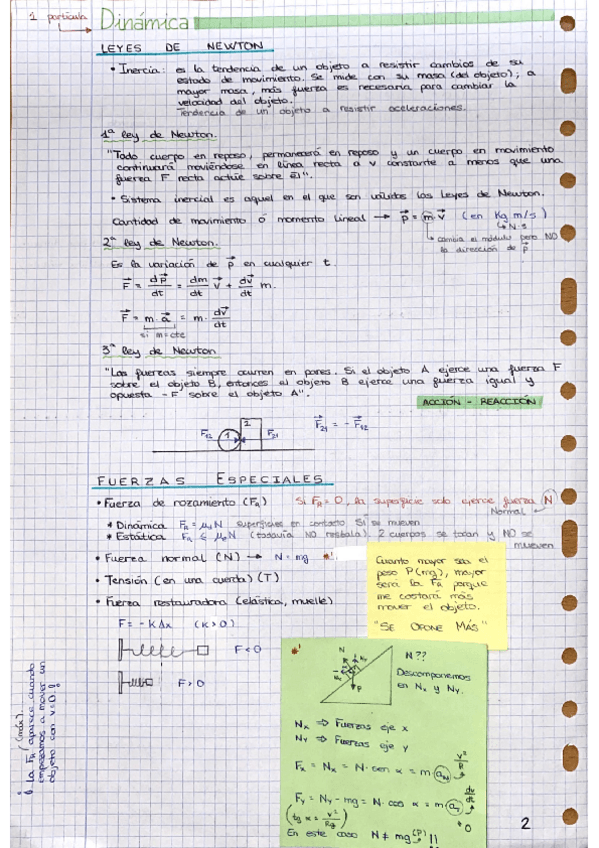 1 partícula
Dinámica
LEYES DE NEWTON
• Inercia: es la tendencia de un objeto a resistir cambios de su
estado de movimiento. Se mide con su masa (del objeto); a
mayor masa, más fuerza es necesaria para cambiar la
velocidad del objeto.
Tendencia de un objeto a resistir aceleraciones.
1ª ley de Newton.
"Todo cuerpo en reposo, permanecerá en reposo y un cuerpo en movimiento
continuará moviéndose en línea recta a v constante a menos que una
fuerza F recta actúe sobre él".
• Sistema inercial es aquel en el que son válidos las Leyes de Newton.
Cantidad de movimiento ó momento lineal → p⃗ = m·v⃗ (en Kg m/s)
↳ N·s
↳ cambia el módulo pero NO
la dirección de p⃗
2ª ley de Newton.
Es la variación de p⃗ en cualquier t.
F⃗ = dp⃗/dt = dm/dt v⃗ + dv⃗/dt m.
F⃗ = m·a⃗ = m· dv⃗/dt
si m=cte
3ª ley de Newton
"Las fuerzas siempre ocurren en pares. Si el objeto A ejerce una fuerza F
sobre el objeto B, entonces el objeto B ejerce una fuerza igual y
opuesta -F sobre el objeto A".
ACCIÓN - REACCIÓN
F12 1 2 F21 F⃗21 = - F⃗12
FUERZAS ESPECIALES
• Fuerza de rozamiento (FR) Si FR = 0, la superficie solo ejerce fuerza N
Normal
* Dinámica FR = μd N superficies en contacto SÍ se mueven
* Estática FR ≤ μe N (todavía NO resbala). 2 cuerpos se tocan y NO se
mueven
• Fuerza normal (N) → N = mg *!
• Tensión (en una cuerda) (T)
• Fuerza restauradora (elástica, muelle)
F = -KΔx (K>0)
F<0
F>0
Cuanto mayor sea el
peso P(mg), mayor
será la FR porque
me costará más
mover el objeto.
"SE OPONE MÁS"
*!
N
P
N??
Descomponemos
en Nx y Ny.
Nx ⇒ Fuerzas eje x
Ny ⇒ Fuerzas eje y
Fx = Nx = N·sen α = m·aN v²/R
Fy = Ny - mg = N·cos α = m·aT dv/dt
0
(tg α = v²/Rg)
En este caso N ≠ mg (P) !!
¡ La FR (máx).
aparece cuando
empezamos a mover un
objeto con v=0 !
2